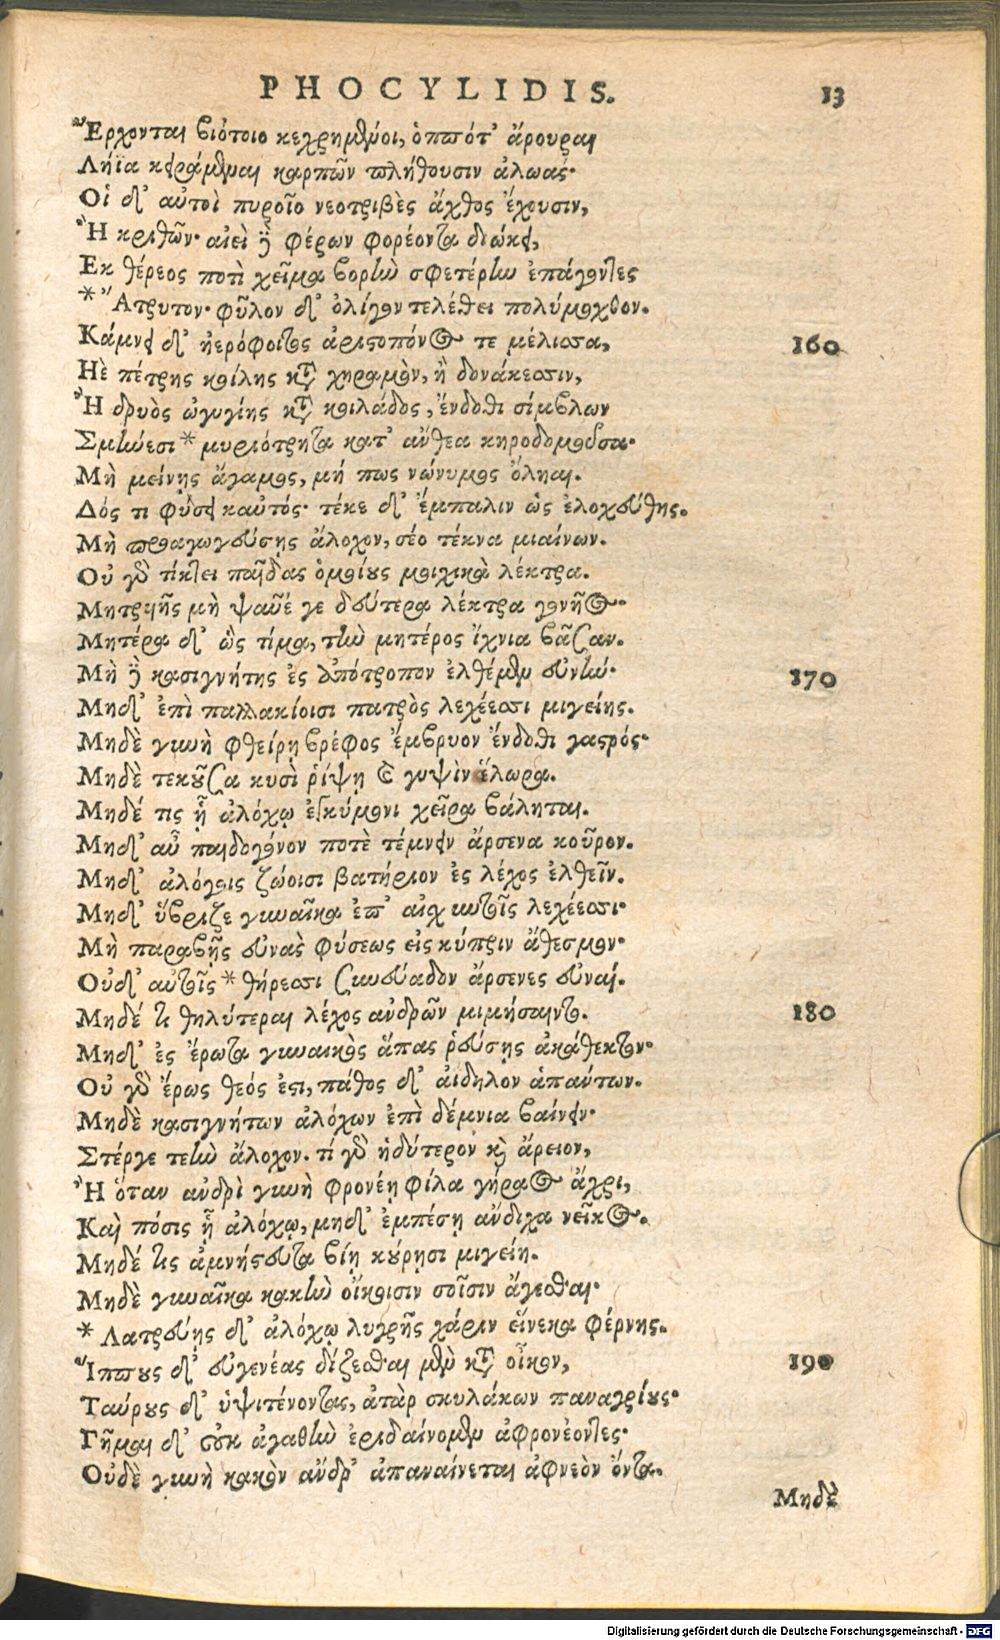 PHOCYLIDIS. 13
Ἔρχονται βιότοιο κεχρημένοι, ὁππότ' ἄρουραι
Λήϊα κειράμεναι καρπῶν πλήθουσιν ἀλωάς.
Οἱ δ' αὐτοὶ πυροῖο νεοτριβὲς ἄχθος ἔχουσιν,
Ἢ κριθῶν· αἰεὶ δὲ φέρων φορέοντα διώκει,
Ἐκ θέρεος ποτὶ χεῖμα βορὴν σφετέρην ἐπάγοντες
* Ἄτρυτον· φῦλον δ' ὀλίγον τελέθει πολύμοχθον.
Κάμνει δ' ἠερόφοιτος ἀριστοπόνος τε μέλισσα, 160
Ἠὲ πέτρης κοίλης κατὰ χηραμὸν, ἢ δονάκεσσιν,
Ἢ δρυὸς ὠγυγίης κατὰ κοιλάδος, ἔνδοθι σίμβλων
Σμήνεσι * μυριότρητα κατ' ἄνθεα κηροδομοῦσα.
Μὴ μείνῃς ἄγαμος, μή πως νώνυμος ὄληαι.
Δός τι φύσει καὐτός· τέκε δ' ἔμπαλιν ὡς ἐλοχεύθης.
Μὴ προαγωγεύσῃς ἄλοχον, σέο τέκνα μιαίνων.
Οὐ γὰρ τίκτει παῖδας ὁμοίους μοιχικὰ λέκτρα.
Μητρυιῆς μὴ ψαῦέ γε δεύτερα λέκτρα γονῆος.
Μητέρα δ' ὣς τίμα, τὴν μητέρος ἴχνια βᾶσαν.
Μὴ δὲ κασιγνήτης ἐς ἀπότροπον ἐλθέμεν εὐνήν· 170
Μηδ' ἐπὶ παλλακίοισι πατρὸς λεχέεσσι μιγείης.
Μηδὲ γυνὴ φθείρῃ βρέφος ἔμβρυον ἔνδοθι γαστρός·
Μηδὲ τεκοῦσα κυσὶ ῥίψῃ καὶ γυψὶν ἕλωρα.
Μηδέ τις ᾗ ἀλόχῳ ἐγκύμονι χεῖρα βάληται.
Μηδ' αὖ παιδογόνον ποτὲ τέμνειν ἄρσενα κοῦρον.
Μηδ' ἀλόγοις ζώοισι βατήριον ἐς λέχος ἐλθεῖν.
Μηδ' ὕβριζε γυναῖκα ἐπ' αἰσχυντοῖς λεχέεσσι·
Μὴ παραβῇς εὐνὰς φύσεως εἰς κύπριν ἄθεσμον·
Οὐδ' αὐτοῖς * θήρεσσι συνεύαδον ἄρσενες εὐναί.
Μηδέ τι θηλύτεραι λέχος ἀνδρῶν μιμήσαιντο. 180
Μηδ' ἐς ἔρωτα γυναικὸς ἅπας ῥεύσῃς ἀκάθεκτον·
Οὐ γὰρ ἔρως θεός ἐστι, πάθος δ' ἀίδηλον ἁπάντων.
Μηδὲ κασιγνήτων ἀλόχων ἐπὶ δέμνια βαίνειν·
Στέργε τεὴν ἄλοχον. τί γὰρ ἡδύτερον καὶ ἄρειον,
Ἢ ὅταν ἀνδρὶ γυνὴ φρονέῃ φίλα γήραος ἄχρι,
Καὶ πόσις ᾗ ἀλόχῳ, μηδ' ἐμπέσῃ ἄνδιχα νεῖκος.
Μηδέ τις ἀμνήστευτα βίῃ κούρῃσι μιγείη.
Μηδὲ γυναῖκα κακὴν οἴκοισιν σοῖσιν ἄγεσθαι·
* Λατρεύῃς δ' ἀλόχῳ λυγρῆς χάριν εἵνεκα φέρνης.
Ἵππους δ' εὐγενέας δίζεσθαι μὲν κατὰ οἶκον, 190
Ταύρους δ' ὑψιτένοντας, ἀτὰρ σκυλάκων παναγρίους·
Γῆμαι δ' οὐκ ἀγαθὴν ἐριδαίνομεν ἀφρονέοντες·
Οὐδὲ γυνὴ κακὸν ἄνδρ' ἀπαναίνεται ἀφνεὸν ὄντα.
Μηδὲ
Digitalisierung gefördert durch die Deutsche Forschungsgemeinschaft - DFG